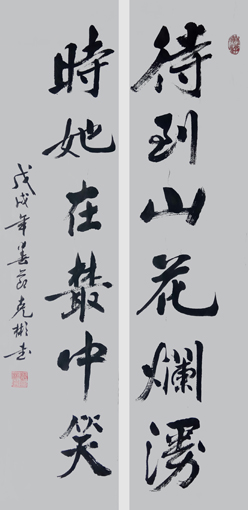 待到山花爛漫
時她在叢中笑
戊戌年 克彬書